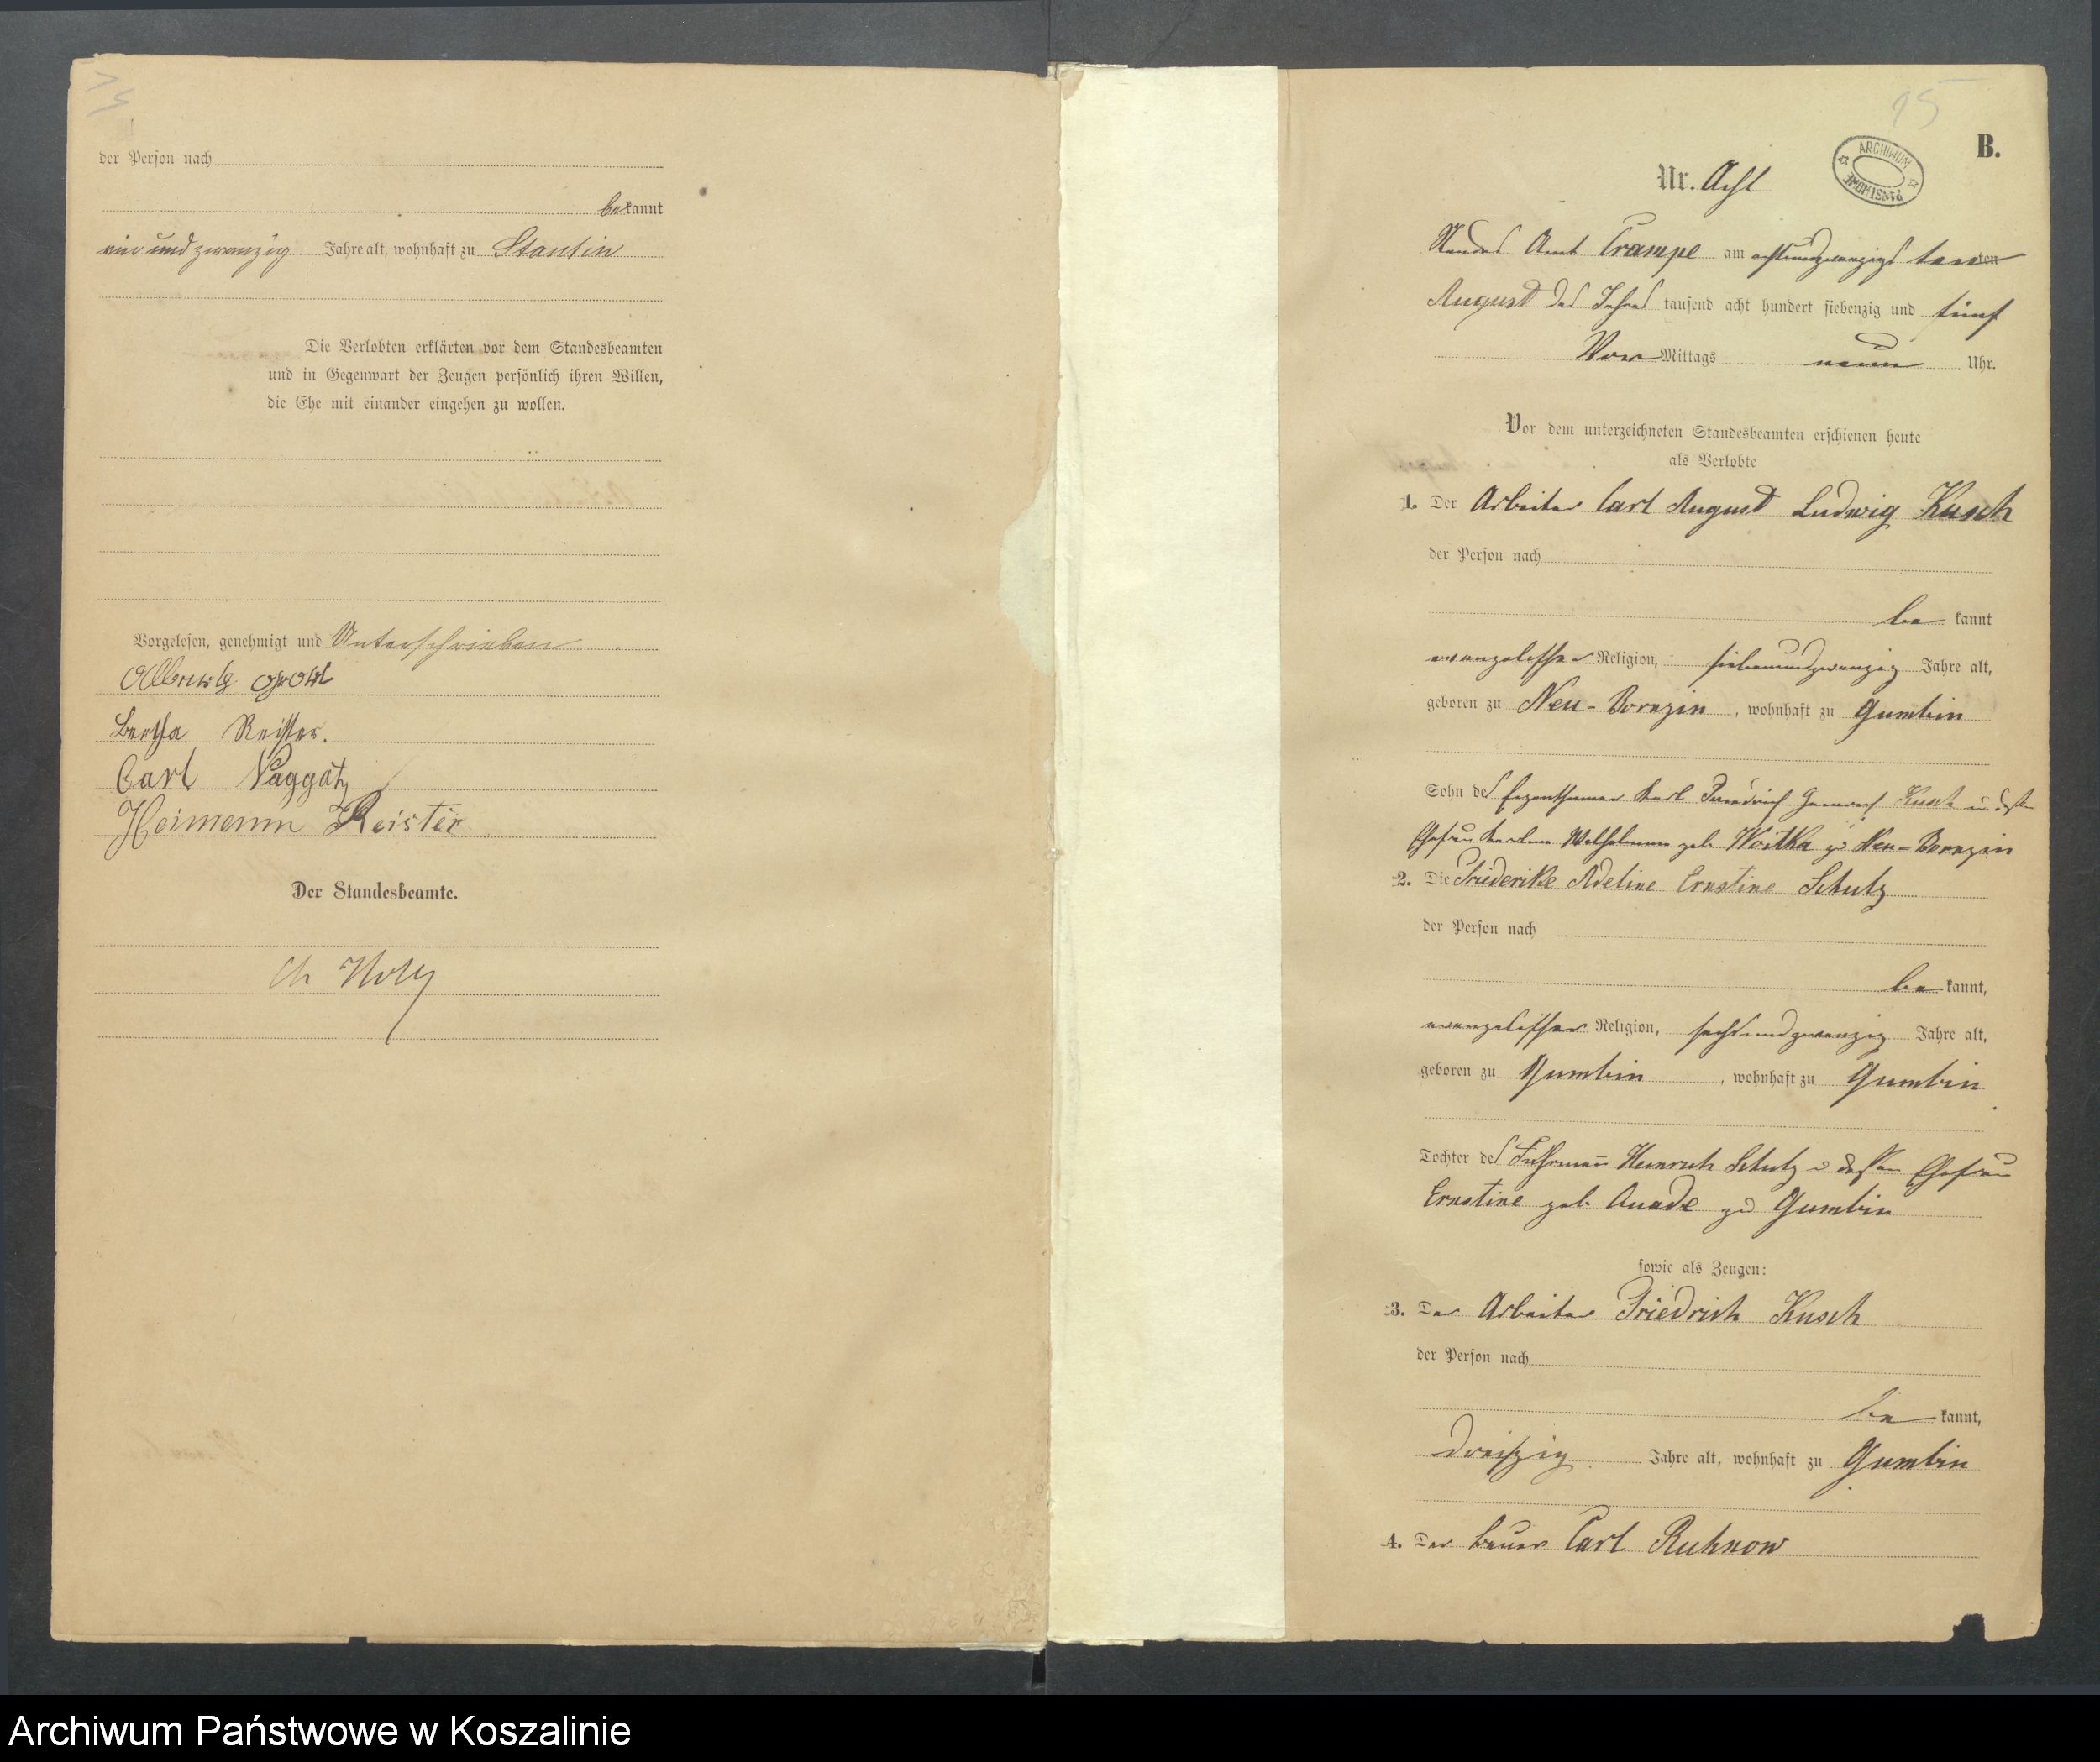 der Person nach
bekannt
ein und zwanzig Jahre alt, wohnhaft zu Stantin
Die Verlobten erklärten vor dem Standesbeamten
und in Gegenwart der Zeugen persönlich ihren Willen,
die Ehe mit einander eingehen zu wollen.
Vorgelesen, genehmigt und Unterschrieben
Bertha Reister.
Carl Paggatz
Heimann Reister
Der Standesbeamte.
15
B.
ARCHIWUM
Nr. Acht
Standes Amt Crampe am achtundzwanzigs tenten
August des Jahres tausend acht hundert siebenzig und fünf
Vor Mittags neun Uhr.
Vor dem unterzeichneten Standesbeamten erschienen heute
als Verlobte
1. Der Arbeiter Carl August Ludwig Kusch
der Person nach
be kannt
evangelischer Religion, siebenundzwanzig Jahre alt,
geboren zu Neu-Bornzin, wohnhaft zu Gumbin
Sohn des Eigenthümer Karl Friedrich Kusch und dessen
Ehefrau Wilhelmine geb. Woitka zu Neu-Bornzin
2. Die Friederike Adeline Ernstine Schulz
der Person nach
be kannt,
evangelischer Religion, sechsundzwanzig Jahre alt,
geboren zu Gumbin, wohnhaft zu Gumbin
Tochter des Fuhrmann Heinrich Schulz u dessen Ehefrau
Ernstine geb. zu Gumbin
sowie als Zeugen:
3. Der Arbeiter Friedrich Kusch
der Person nach
be kannt,
dreißig Jahre alt, wohnhaft zu Gumbin
4. Der Bauer Carl Ruhnow
Archiwum Państwowe w Koszalinie